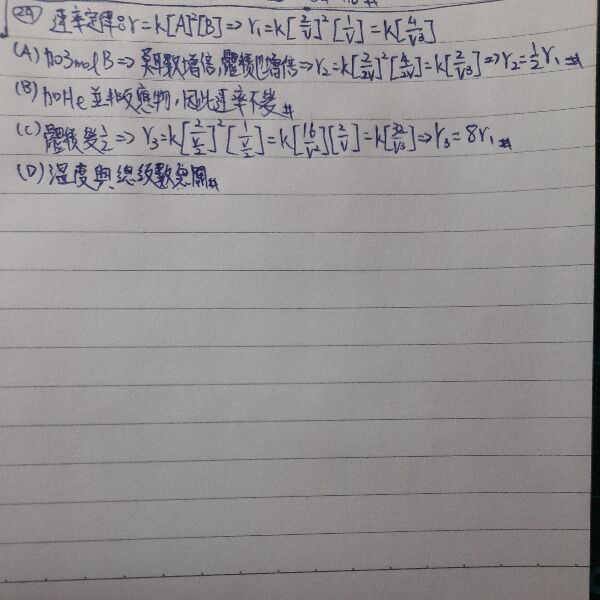 (24) 速率定律:r=k[A]²[B]⇒r₁=k[2/V]²[1/V]=k[4/V³]
(A) 加3mol B⇒莫耳數增倍,體積也增倍⇒r₂=k[2/2V]²[4/2V]=k[2/V³]⇒r₂=1/2 r₁
(B) 加He並非反應物,因此速率不變#
(C) 體積變1/2⇒r₃=k[2/(V/2)]²[1/(V/2)]=k[16/V²][2/V]=k[32/V³]⇒r₃=8r₁#
(D) 溫度與總級數無關#